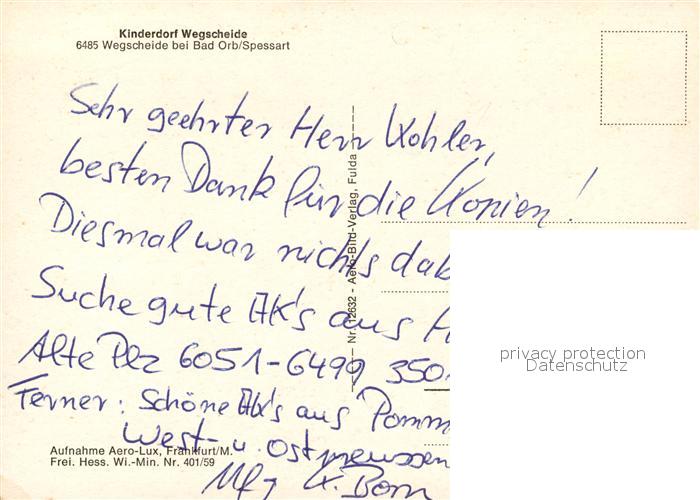 Kinderdorf Wegscheide
6485 Wegscheide bei Bad Orb/Spessart
Sehr geehrter Herr Kohler,
besten Dank für die Kopien!
Diesmal war nichts dab
Suche gute AK's aus H
Alte Plz 6051-6499 350
Ferner: Schöne AK's aus Pomm
West- u. Ostpreussen
Mfg K. Born
Aufnahme Aero-Lux, Frankfurt/M.
Frei. Hess. Wi.-Min. Nr. 401/59
Nr. 12632 - Aero-Bild-Verlag, Fulda
privacy protection
Datenschutz